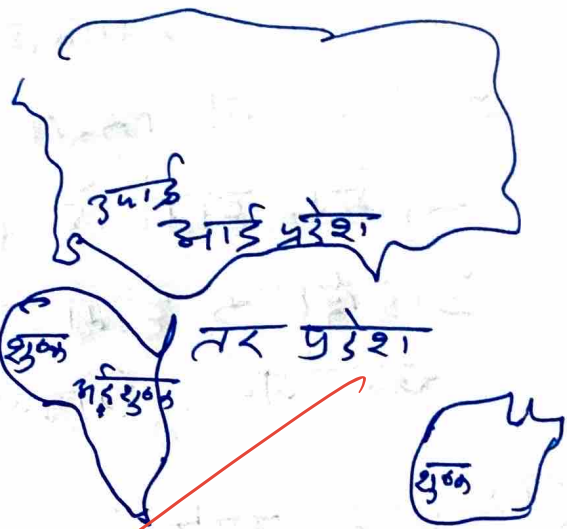 आर्द्र प्रदेश
शुष्क
तर प्रदेश
अर्द्धशुष्क
शुष्क